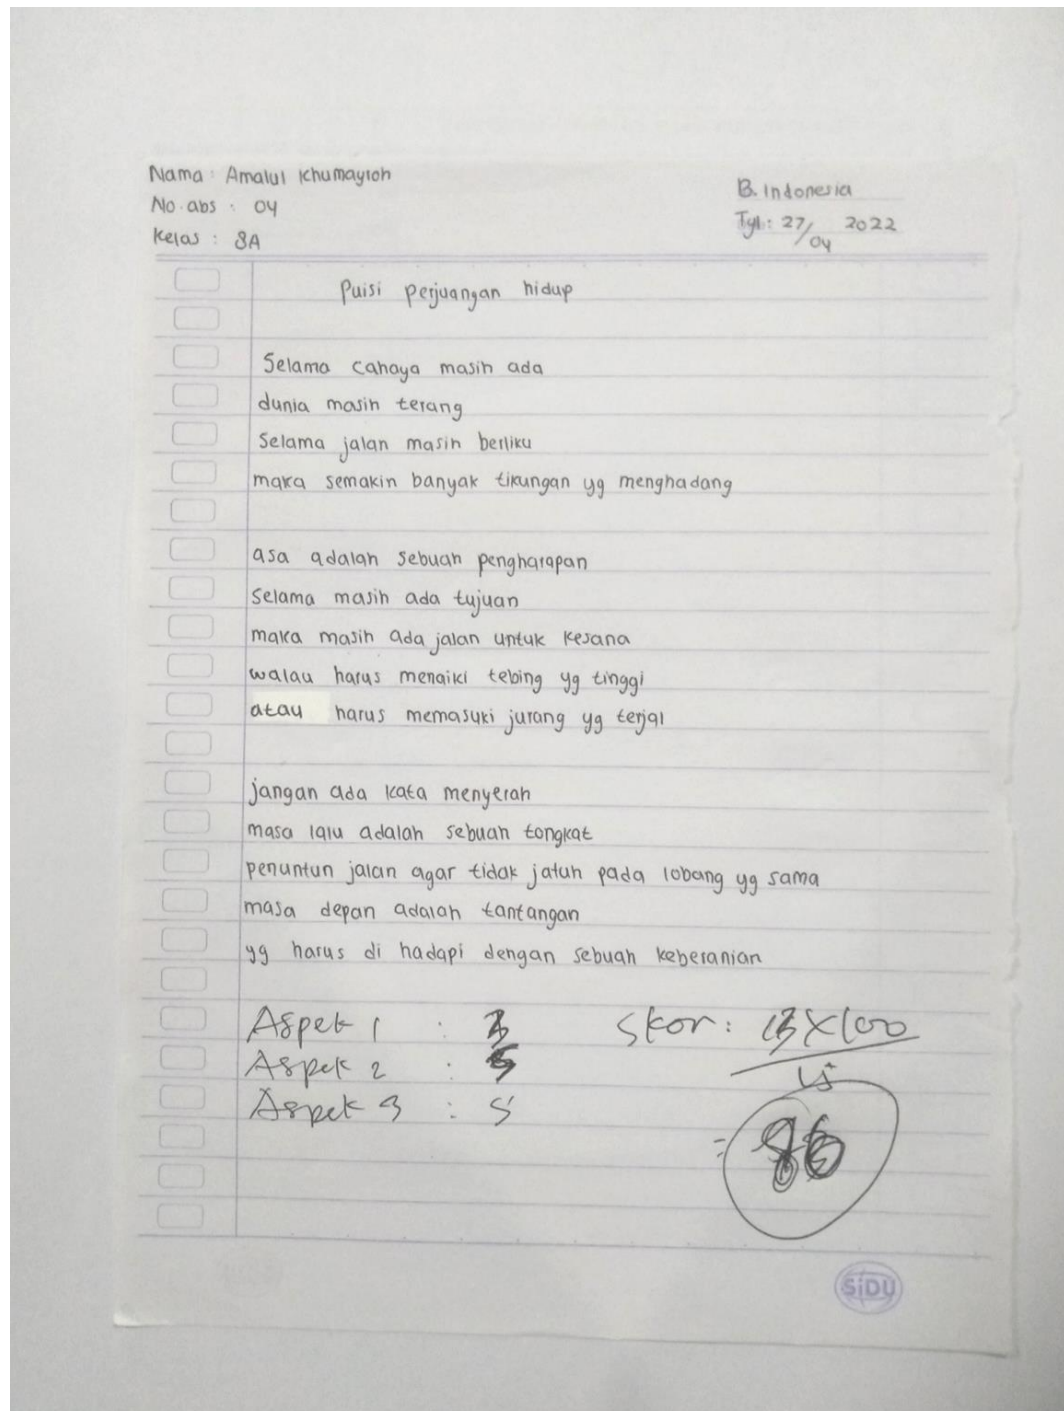 Nama : Amalul Khumayroh
No. abs : 04
Kelas : 8A
B. Indonesia
Tgl : 27/04 2022
Puisi perjuangan hidup
Selama cahaya masih ada
dunia masih terang
Selama jalan masih berliku
maka semakin banyak tikungan yg menghadang
asa adalah sebuah pengharapan
Selama masih ada tujuan
maka masih ada jalan untuk kesana
walau harus menaiki tebing yg tinggi
atau harus memasuki jurang yg terjal
jangan ada kata menyerah
masa lalu adalah sebuah tongkat
penuntun jalan agar tidak jatuh pada lobang yg sama
masa depan adalah tantangan
yg harus di hadapi dengan sebuah keberanian
Aspek 1 : 3
Aspek 2 : 5
Aspek 3 : 5
Skor : 13 x 100
15
= 86
SiDU